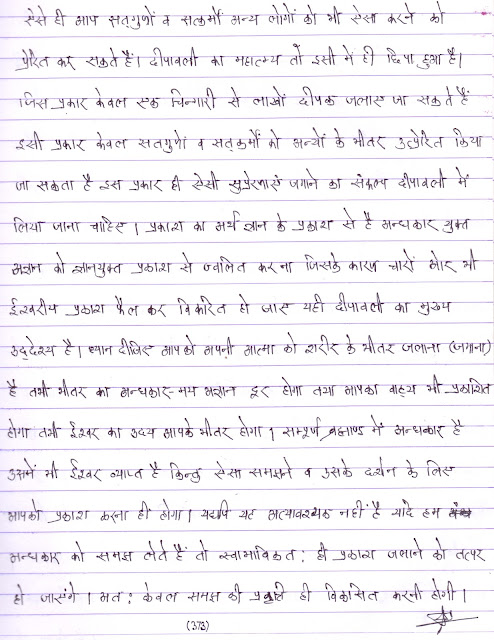 ऐसे ही आप सतगुणों व सत्कर्मों अन्य लोगों को भी ऐसा करने को
प्रेरित कर सकते हैं। दीपावली का महात्म्य तो इसी में ही छिपा हुआ है।
जिस प्रकार केवल एक चिन्गारी से लाखों दीपक जलाए जा सकते हैं
इसी प्रकार केवल सतगुणों व सत्कर्मों को अन्यों के भीतर उत्प्रेरित किया
जा सकता है इस प्रकार ही ऐसी सुप्रेरणाएं जगाने का संकल्प दीपावली में
लिया जाना चाहिए। प्रकाश का अर्थ ज्ञान के प्रकाश से है अन्धकार युक्त
अज्ञान को ज्ञानयुक्त प्रकाश से ज्वलित करना जिसके कारण चारों ओर भी
ईश्वरीय प्रकाश फैल कर विकरित हो जाए यही दीपावली का मुख्य
उद्देश्य है। ध्यान दीजिए आपको अपनी आत्मा को शरीर के भीतर जलाना (जगाना)
है तभी भीतर का अन्धकार-मय अज्ञान दूर होगा तथा आपका वाह्य भी प्रकाशित
होगा तभी ईश्वर का उदय आपके भीतर होगा। सम्पूर्ण ब्रह्माण्ड में अन्धकार है
उसमें भी ईश्वर व्याप्त है किन्तु ऐसा समझने व उसके दर्शन के लिए
आपको प्रकाश करना ही होगा। यद्यपि यह अत्यावश्यक नहीं है यदि हम
अन्धकार को समझ लेते हैं तो स्वाभाविकत: ही प्रकाश जलाने को तत्पर
हो जाएंगे। अत: केवल समझ की प्रवृत्ति ही विकसित करनी होगी।
(373)